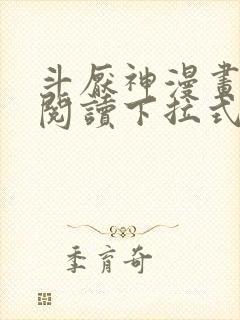 斗厭神漫畫
閱讀下拉式
季育奇